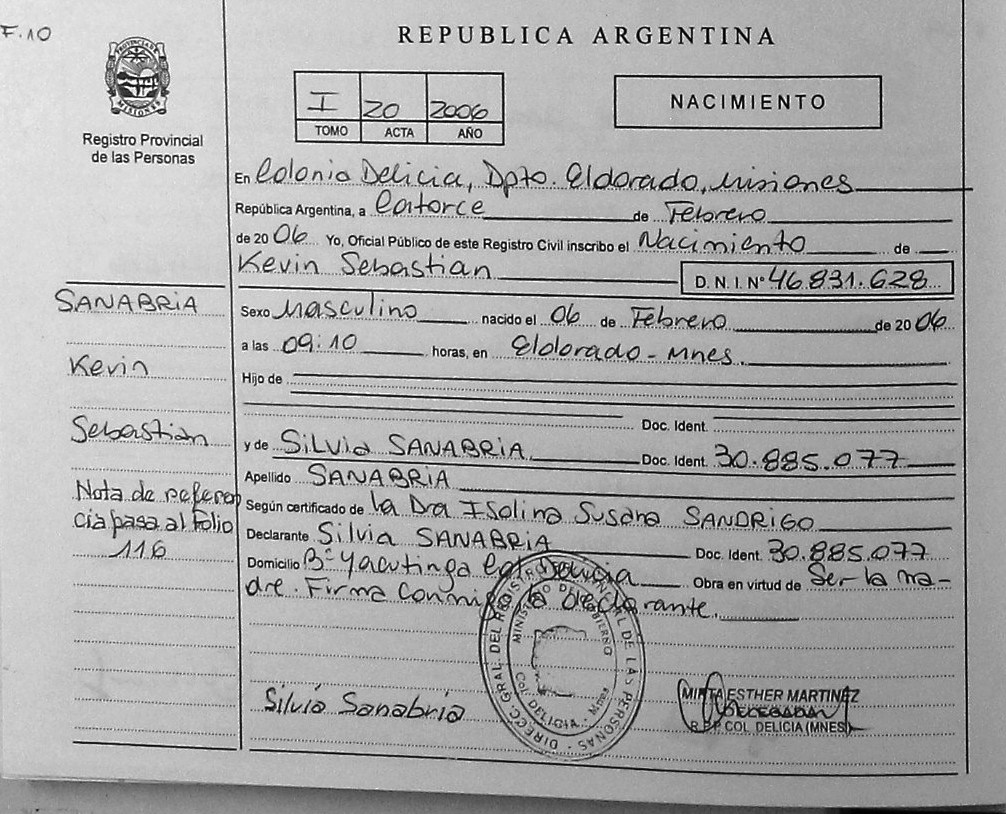 F.10
REPUBLICA ARGENTINA
PROVINCIA DE
MISIONES
Registro Provincial
de las Personas
I 20 2006
TOMO ACTA AÑO
NACIMIENTO
En Colonia Delicia, Dpto. Eldorado, Misiones
República Argentina, a Catorce de Febrero
de 2006 Yo, Oficial Público de este Registro Civil inscribo el Nacimiento de
Kevin Sebastian D. N. I. N° 46.831.628
SANABRIA
Kevin
Sebastian
Nota de referen
cia pasa al Folio
116
Sexo Masculino nacido el 06 de Febrero de 2006
a las 09:10 horas, en Eldorado - Mnes.
Hijo de
Doc. Ident.
y de Silvia SANABRIA Doc. Ident. 30.885.077
Apellido SANABRIA
Según certificado de la Dra Isolina Susana SANDRIGO
Declarante Silvia SANABRIA Doc. Ident. 30.885.077
Domicilio B° Yacutinga Col. Delicia Obra en virtud de Ser la ma-
dre. Firma conmigo la declarante.
DIRECC. GRAL. DEL REGISTRO PROVINCIAL DE LAS PERSONAS
MINISTERIO DE GOBIERNO
Col. DELICIA - Mnes
Silvia Sanabria
MIRTA ESTHER MARTINEZ
DELEGADA
R.P.P. COL. DELICIA (MNES)